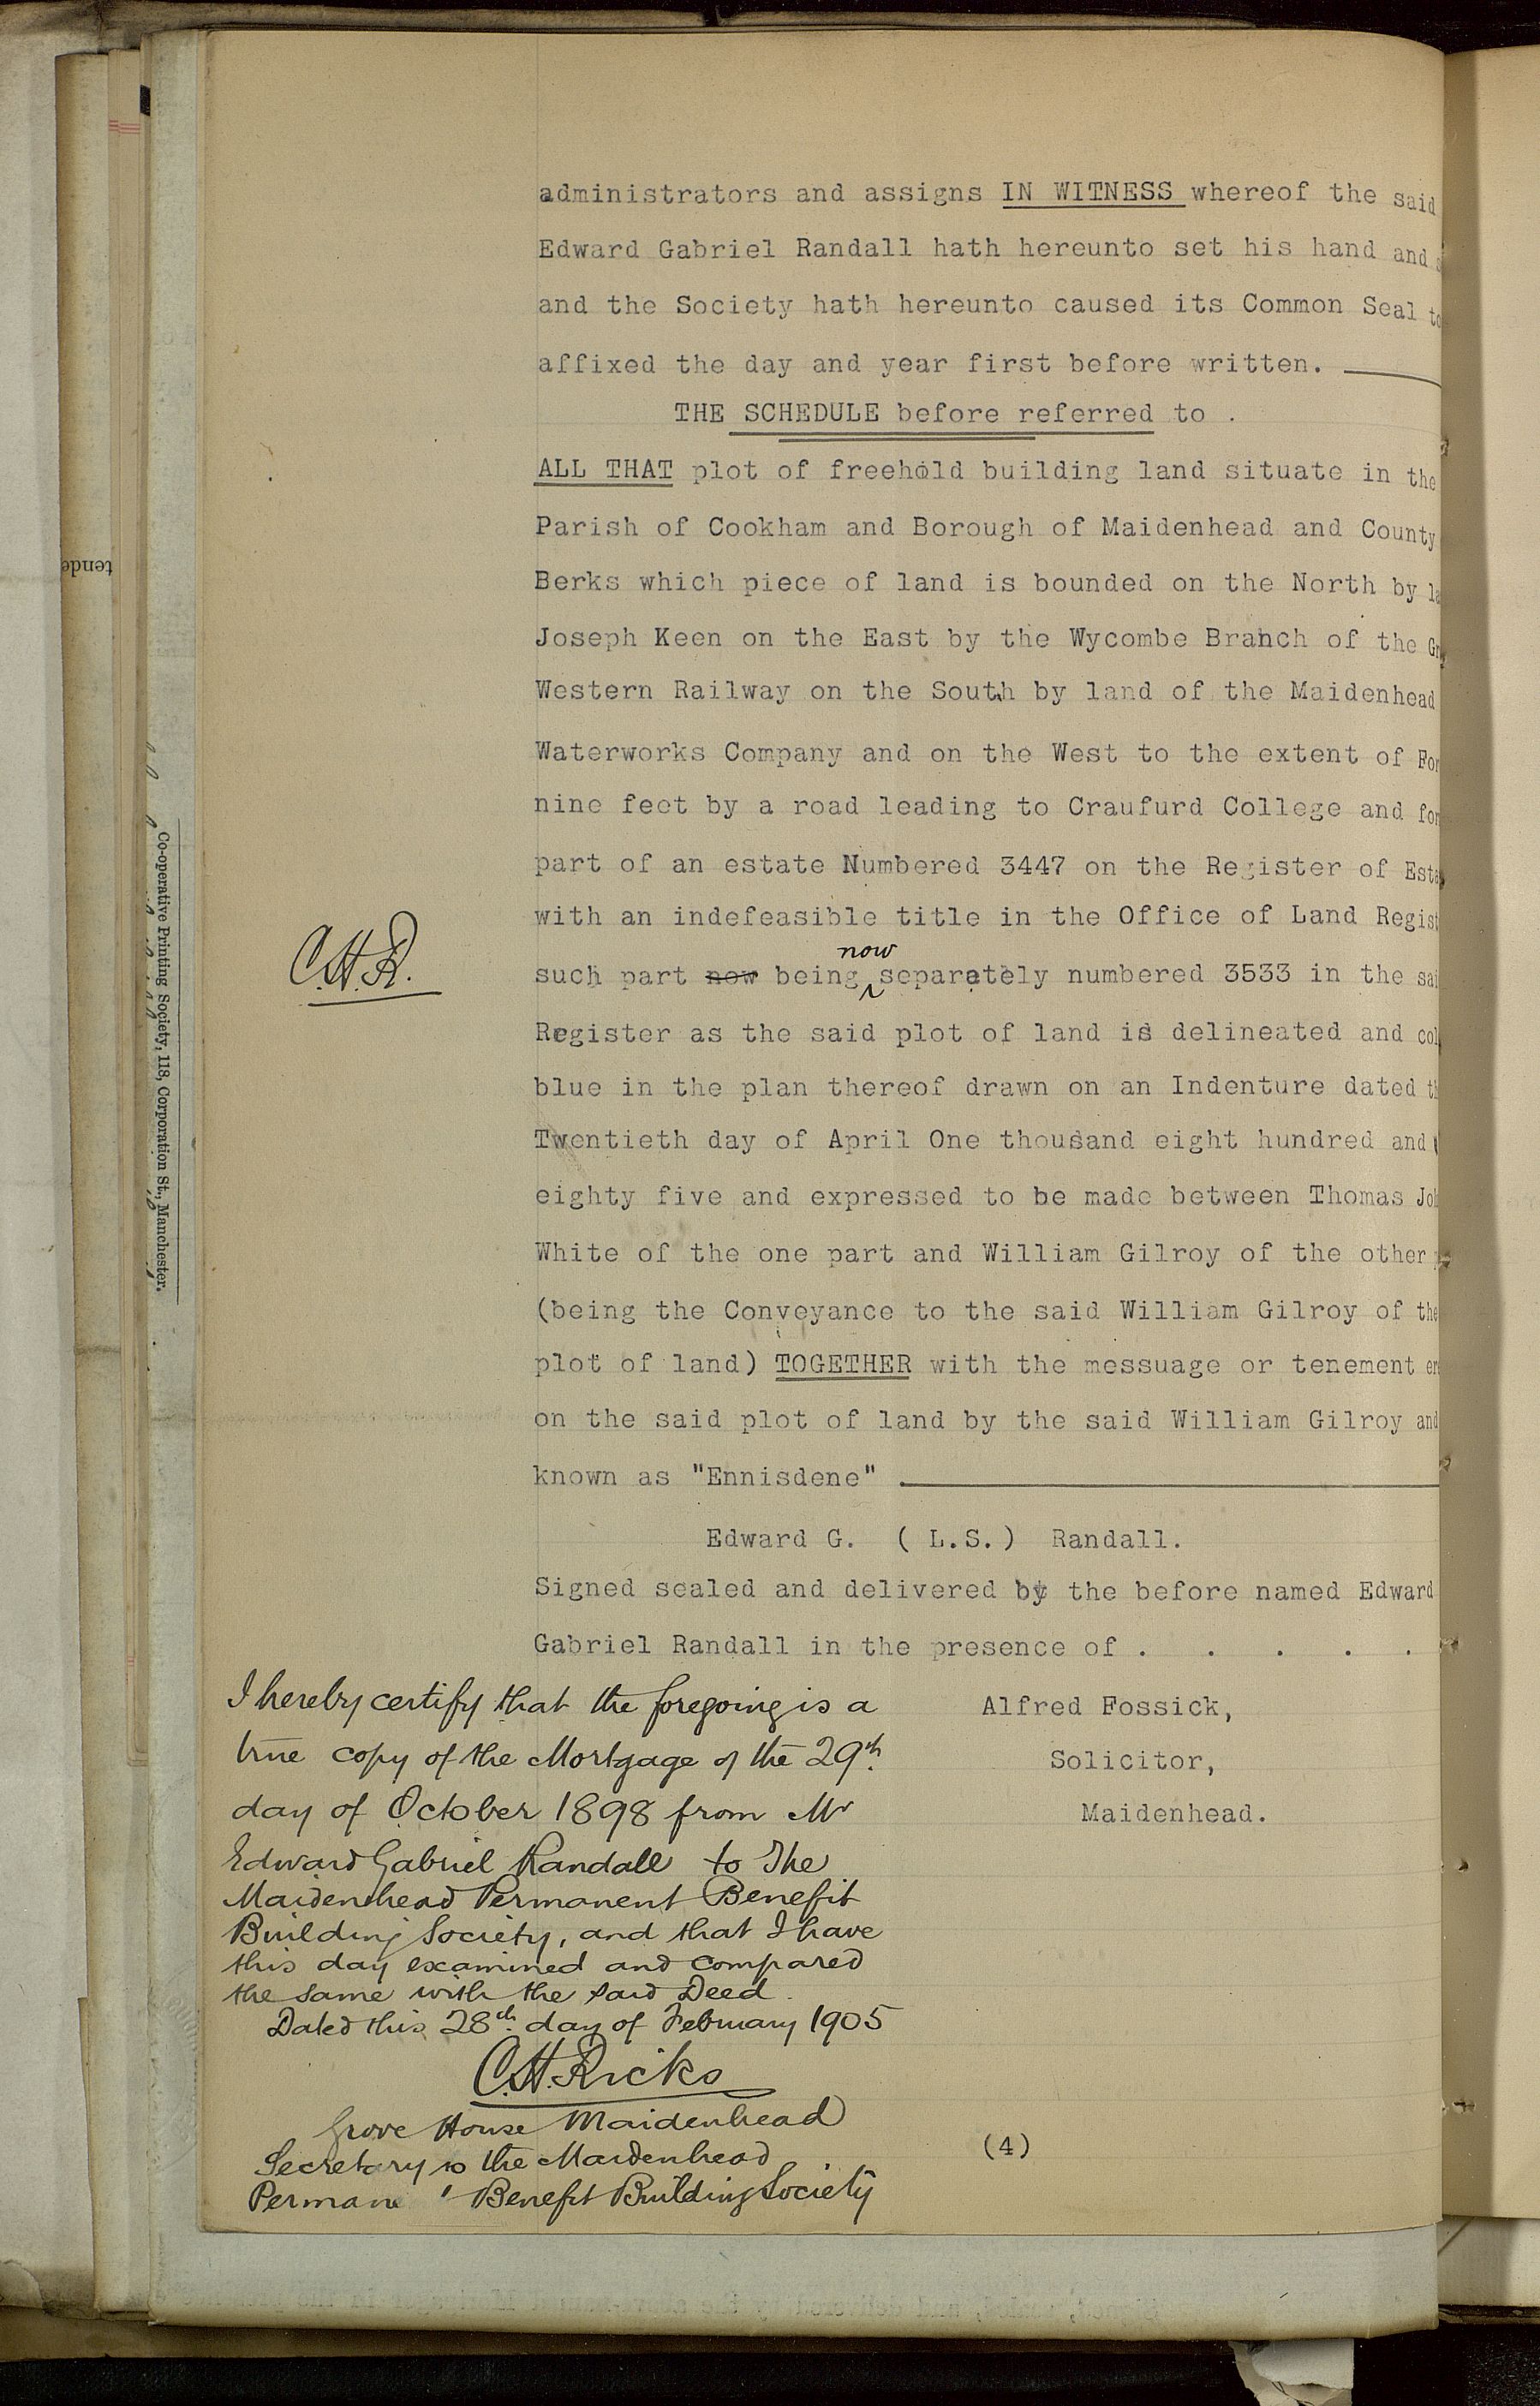 administrators and assigns IN WITNESS whereof the said
Edward Gabriel Randall hath hereunto set his hand and
and the Society hath hereunto caused its Common Seal to
affixed the day and year first before written.
THE SCHEDULE before referred to .
ALL THAT plot of freehold building land situate in the
Parish of Cookham and Borough of Maidenhead and County
Berks which piece of land is bounded on the North by
Joseph Keen on the East by the Wycombe Branch of the
Western Railway on the South by land of the Maidenhead
Waterworks Company and on the West to the extent of
nine feet by a road leading to Craufurd College and
part of an estate Numbered 3447 on the Register of
with an indefeasible title in the Office of Land
now
C.H.R. such part now being separately numbered 3533 in the
Register as the said plot of land is delineated and
blue in the plan thereof drawn on an Indenture dated
Twentieth day of April One thousand eight hundred and
eighty five and expressed to be made between Thomas
White of the one part and William Gilroy of the other
(being the Conveyance to the said William Gilroy of the
plot of land) TOGETHER with the messuage or tenement
on the said plot of land by the said William Gilroy and
known as "Ennisdene"
Edward G. ( L.S.) Randall.
Signed sealed and delivered by the before named Edward
Gabriel Randall in the presence of . . . . .
Alfred Fossick,
Solicitor,
Maidenhead.
I hereby certify that the foregoing is a
true copy of the Mortgage of the 29th.
day of October 1898 from Mr
Edward Gabriel Randall to The
Maidenhead Permanent Benefit
Building Society, and that I have
this day examined and compared
the same with the said Deed.
Dated this 28th. day of February 1905
C.H. Ricks
Grove House Maidenhead
Secretary to the Maidenhead
Permane Benefit Building Society
(4)
tende
Co-operative Printing Society, 118, Corporation St., Manchester.